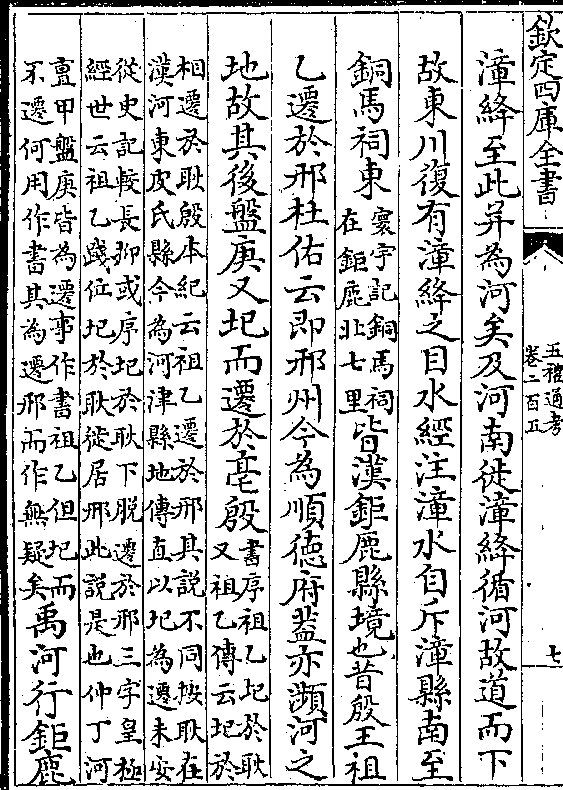 欽定四庫全書
五禮通考
卷二百五
七
漳絳至此并為河矣及河南徙漳絳循河故道而下
故東川復有漳絳之目水經注漳水自斥漳縣南至
銅馬祠東寰宇記銅馬祠在鉅鹿北七里皆漢鉅鹿縣境也昔殷王祖
乙遷於邢杜佑云即邢州今為順德府蓋亦瀕河之
地故其後盤庚又圮而遷於亳殷書序祖乙圮於耿又祖乙傳云圮於
相遷於耿殷本紀云祖乙遷於邢其説不同按耿在
漢河東皮氏縣今為河津縣地傳直以圮為遷未安
從史記較長抑或序圮於耿下脱遷於邢三字皇極
經世云祖乙踐位圮於耿徙居邢此説是也仲丁河
亶甲盤庚皆為遷事作書祖乙但圮而不遷何用作書其為遷邢而作無疑矣禹河行鉅鹿